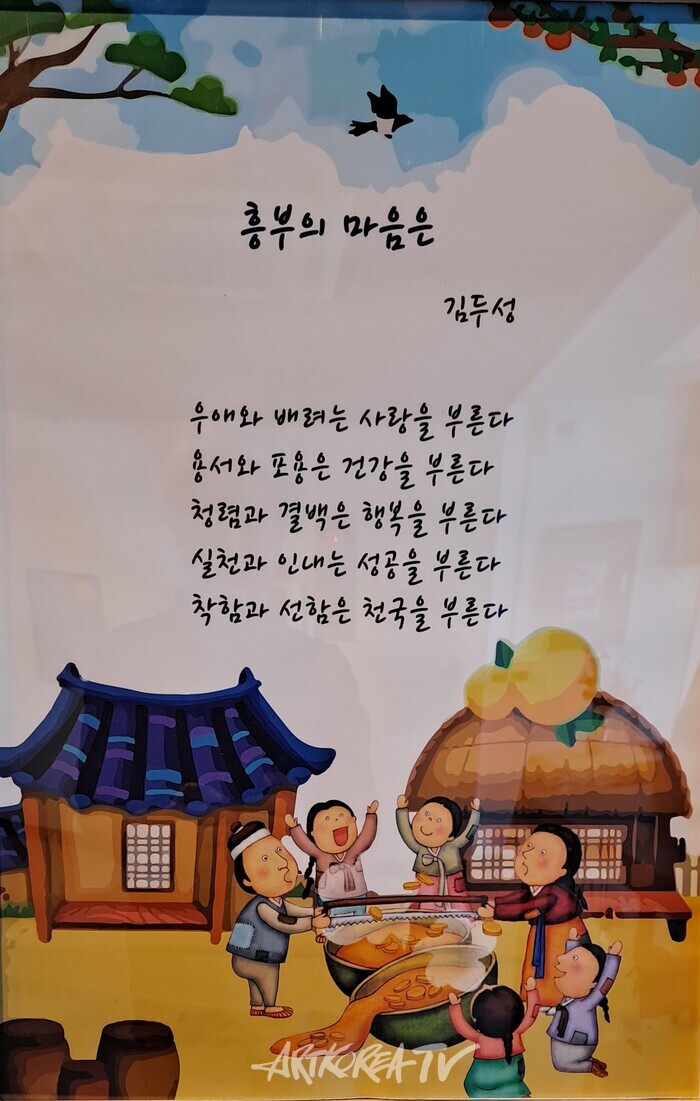 흥부의 마음은
김두성
우애와 배려는 사랑을 부른다
용서와 포용은 건강을 부른다
청렴과 결백은 행복을 부른다
실천과 인내는 성공을 부른다
착함과 선함은 천국을 부른다
ARTKOREATV